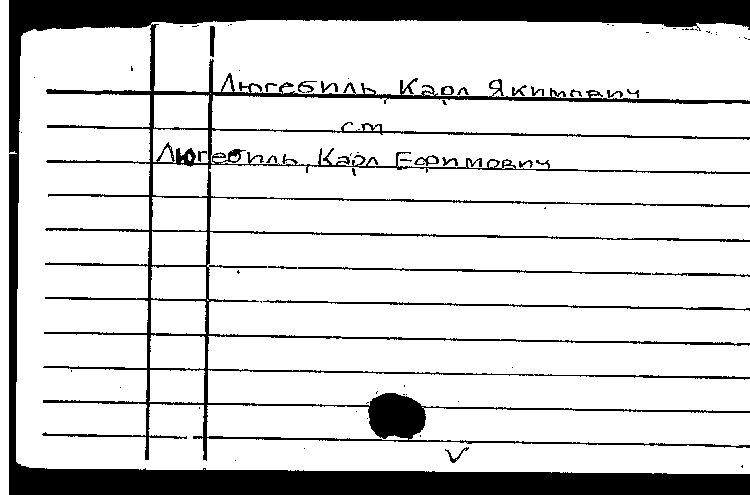 Люгебиль, Карл Якимович
ст
Люгебиль, Карл Ефимович